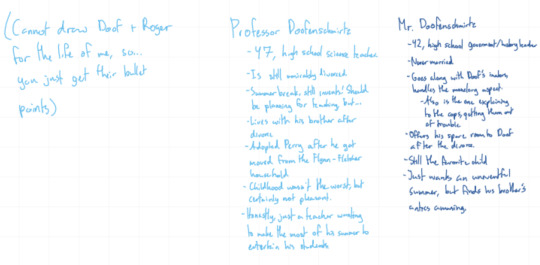 (Cannot draw Doof + Roger
for the life of me, so...
you just get their bullet
points)
Professor Doofenshmirtz
- 47, high school science teacher
- Is still amicably divorced
- Summer break still counts! Should
be planning for teaching but...
- Lives with his brother after
divorce
- Adopted Perry after he got
moved from the Flynn-Fletcher
household.
- Childhood wasn't the worst, but
certainly not pleasant.
- Honestly, just a teacher wanting
to make the most of his summer to
entertain his students
Mr. Doofenshmirtz
- 42, high school government/history teacher
- Never married
- Goes along with Doof's
handles the monetary aspect.
- Also is the one explaining
to the cops, getting them out
of trouble.
- Offers his spare room to Doof
after the divorce
- Still the favorite child
- Just wants an uneventful
summer, but finds his brother's
antics amusing.